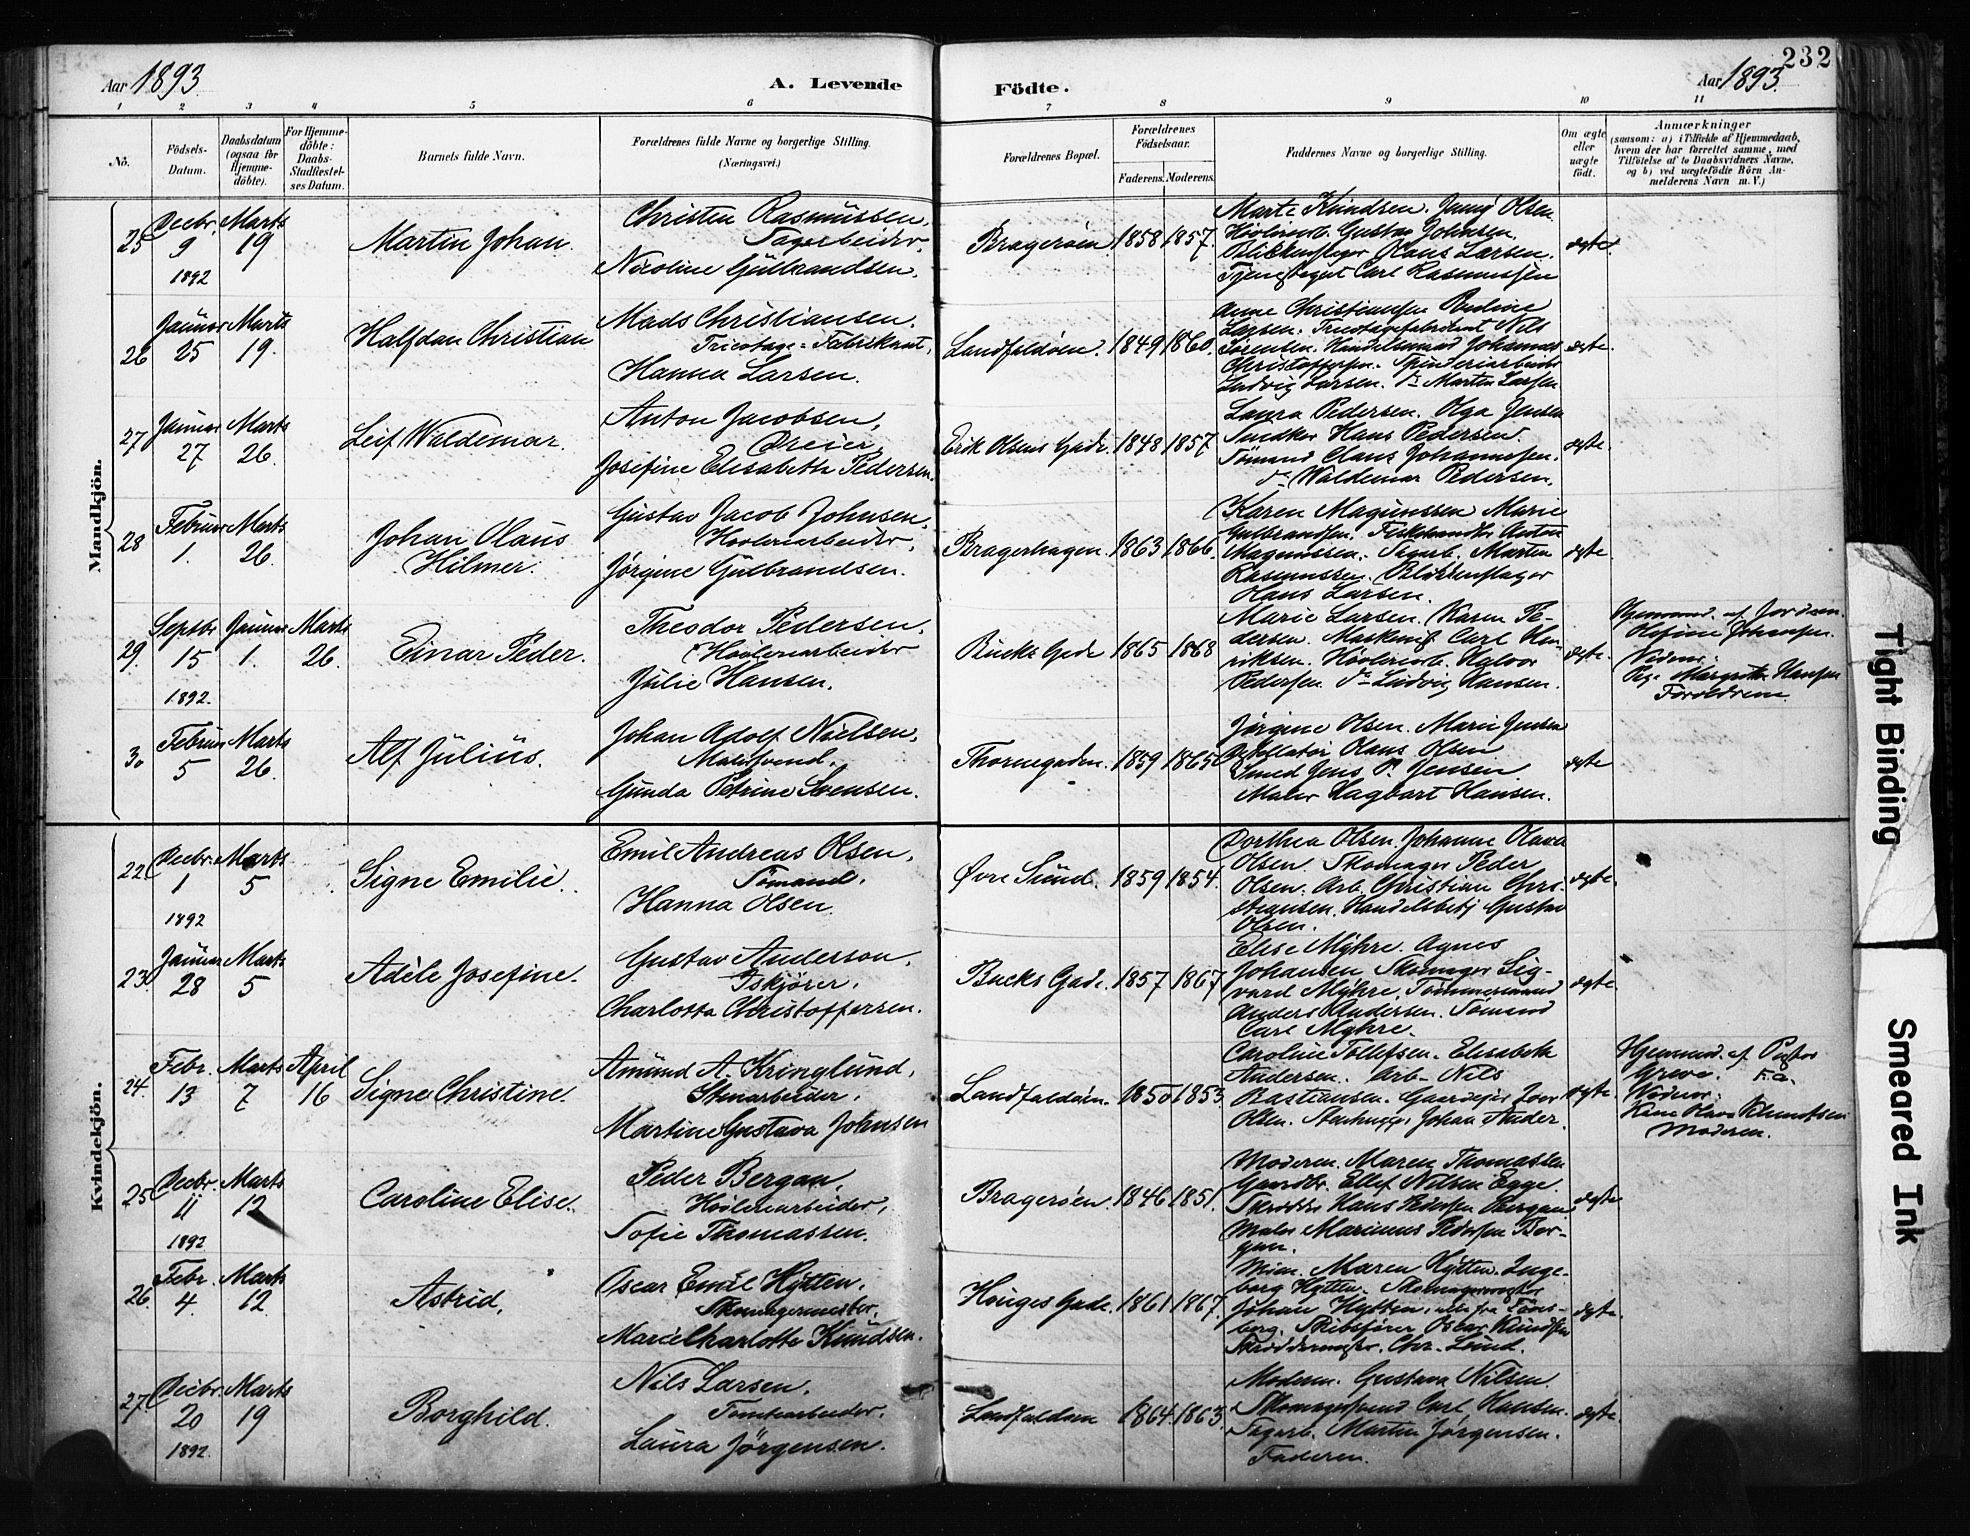 232
Aar 1893 A. Levende Födte. Aar 1893
1 2 3 4 5 6 7 8 9 10 11
No.
Födsels-Datum.
Daabsdatum (ogsaa for Hjemmedöbte).
For Hjemmedöbte: Daabs-Stadfæstelses Datum.
Barnets fulde Navn.
Forældrenes fulde Navne og borgerlige Stilling.
(Næringsvei.)
Forældrenes Bopæl.
Forældrenes Födselsaar.
Faderens. Moderens.
Faddernes Navne og borgerlige Stilling.
Om ægte eller uægte födt.
Anmærkninger
(saasom: a) i Tilfælde af Hjemmedaab, hvem der har forrettet samme, med Tilföielse af to Daabsvidners Navne, og b) ved uægtefödte Börn Anmelderens Navn m. V.)
Mandkjön.
25 Decbr. 9 1892 Marts 19 Martin Johan.
Christen Rasmussen,
Sagarbeider,
Nicoline Gulbrandsen.
Bragerøen 1858 1857.
Marte Knudsen. Jenny Olsen.
Høvlearb. Gustav Johnsen.
Blikkenslager Hans Larsen.
Carl Rasmussen
ægte.
26 Januar 25 Marts 19. Halfdan Christian
Mads Christiansen.
Tricotage-Fabrikant,
Hanna Larsen.
Landfaldøen. 1849 1860.
Anne Christiansen Pauline
Larsen. Tricotagefabrikant Nils
Sørensen. Handelsmand Johannes
Christoffersen. Spinderiarbeider
Ludvig Larsen. do Martin Larsen
ægte.
27 Januar 27 Marts 26. Leif Waldemar.
Anton Jacobsen,
Dreier,
Josefine Elisabeth Pedersen.
Erik Olsens Gade. 1848 1857
Laura Pedersen. Olga Jensen
Snedker Hans Pedersen.
Sømand Claus Johannssen.
do Waldemar Pedersen.
ægte.
28 Februar 1. Marts 26. Johan Olaus
Hilmer.
Gustav Jacob Johnsen,
Høvleriarbeider,
Jørgine Gulbrandsen.
Bragerhagen. 1863 1866.
Karen Magnussen Marie
Gulbrandsen. Fiskehandler Anton
Magnussen. Sagarb. Martin
Rasmussen. Blikkenslager
Hans Larsen.
ægte.
29. Septbr 15 1892. Januar 1. Marts 26. Einar Peder.
Theodor Pedersen,
Høvleriarbeider
Julie Hansen.
Bucks Gade 1865 1868
Marie Larsen. Karen Pe-
dersen. Maskinist Carl Hen-
riksen. Høvleriarb. Halvor
Pedersen. do Ludvig Hansen.
ægte.
Hjemmed. af Jordem.
Olufine Johansen.
Vidner:
Pige Margrethe Hansen
Forældrene
30 Februar 5 Marts 26. Alf Julius.
Johan Adolf Nielsen,
Malersvend,
Gunda Petrine Svensen.
Thornegaden. 1859 1865
Jørgine Olsen. Marie Jensen
Olaus Olsen
Smed Jens P. Jensen
Maler Hagbart Hansen.
ægte
Kvindekjön.
22. Decbr. 1 1892 Marts 5 Signe Emilie.
Emil Andreas Olsen,
Sømand,
Hanna Olsen
Øvre Sund. 1859 1854.
Dorthea Olsen. Johanne Olava
Olsen. Skomager Peder
Olsen. Arb. Christian Chri-
stiansen. Handelsbetj Gustav
Olsen.
ægte.
23. Januar 28 Marts 5 Adèle Josefine.
Gustav Anderson,
Iskjører,
Charlotta Christoffersen.
Bucks Gade. 1857 1867
Elise Myhre. Agnes
Johansen. Skomager Sig-
vard Myhre. Tømmermand
Anders Andersen. Sømand
Carl Myhre.
ægte.
24. Febr. 13 Marts 7 April 16 Signe Christine.
Amund A. Kringlund,
Stenarbeider,
Martine Gustava Johnsen
Landfaldøen. 1850 1853
Caroline Tollefsen. Elisabeth
Andersen. Arb. Nils
Bastiansen. Gaardejer Iver
Olsen. Stenhugger Johan Ander.
ægte.
Hjemmed. af Pastor
Greve. F.a.
Vidner:
Moderen.
25 Decbr. 11 1892 Marts 12 Caroline Elise.
Peder Bergan,
Høvleriarbeider,
Sofie Thomassen.
Bragerøen. 1846 1851.
Moderen. Maren Thomassen
Gaardbr. Ellef Nilsen Egge.
Skrædder Hans Pedersen Bergan
Maler Marinus Pedersen Ber-
gan.
ægte
26. Febr. 4 Marts 12. Astrid,
Oscar Emil Hytten,
Skomagermester,
Marie Charlotte Knudsen.
Houges Gade. 1861 1867.
Maren Hytten. Inge-
borg Hytten. Skomagermester
Johan Hytten, alle fra Tøns-
berg. Skibsfører Oscar Knudsen
Skræddermester. Chr. Lund.
ægte.
27. Decbr. 20 1892. Marts 19 Borghild.
Nils Larsen,
Tomtearbeider,
Laura Jørgensen.
Landfaldøen 1864 1863
Moderen. Gustava Nilsen.
Skomagersvend Carl Hansen.
Sagarb. Martin Jørgensen.
Faderen.
ægte.
Tight Binding
Smeared Ink